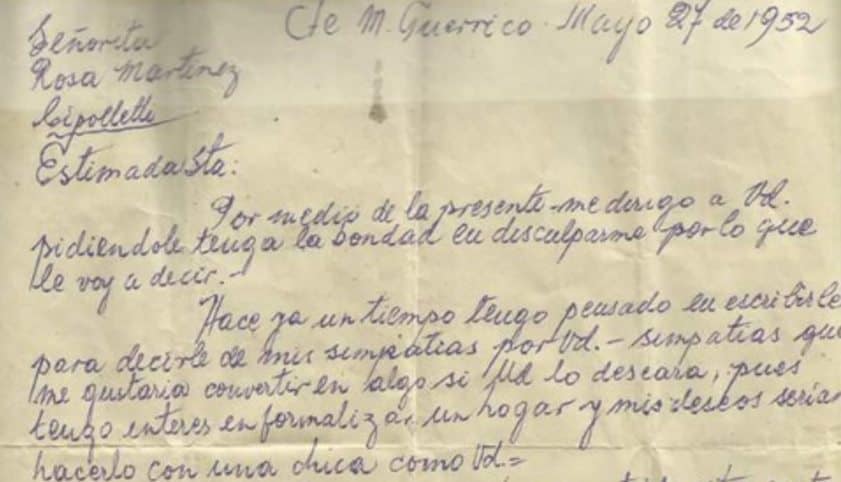 Cte M. Guerrico. Mayo 27 de 1952
Señorita
Rosa Martinez
Cipolletti
Estimada Sta:
Por medio de la presente me dirigo a Vd.
pidiendole tenga la bondad en disculparme por lo que
le voy a decir.-
Hace ya un tiempo tengo pensado en escribirle
para decirle de mis simpatias por Vd.- simpatias que
me gustaria convertir en algo si Vd lo deseara, pues
tengo interes en formalizar un hogar y mis deseos serian
hacerlo con una chica como Vd.=